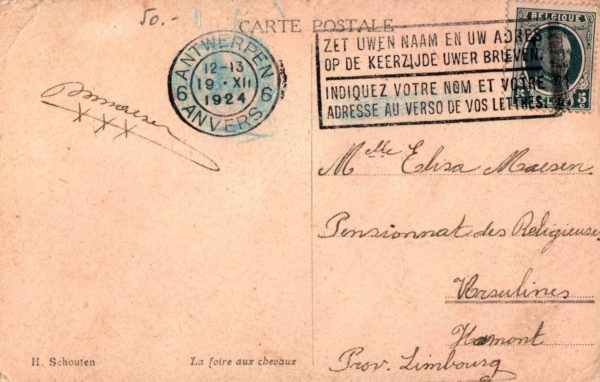 50.-
CARTE POSTALE
BELGIQUE
5
ANTWERPEN
12-13
6 19 · XII 6
1924
ANVERS
ZET UWEN NAAM EN UW ADRES
OP DE KEERZIJDE UWER BRIEVEN.
INDIQUEZ VOTRE NOM ET VOTRE
ADRESSE AU VERSO DE VOS LETTRES.
XXX
Mlle Elisa Maesen
Pensionnat des Religieuses
Ursulines
Hamont
Prov. Limbourg
H. Schouten
La foire aux chevaux